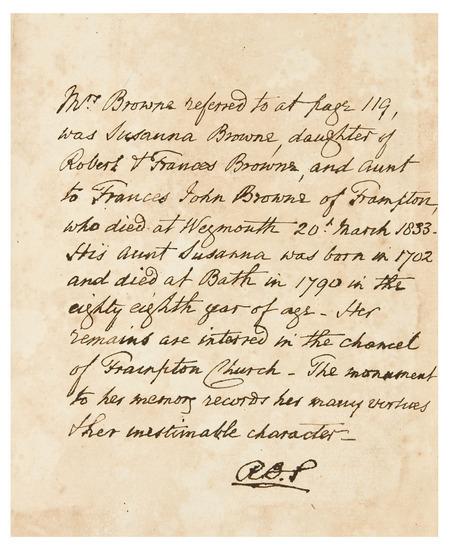 Mrs Browne referred to at page 119,
was Susanna Browne, daughter of
Robert & Frances Browne, and Aunt
to Frances John Browne of Frampton,
who died at Weymouth 20th March 1833-
His Aunt Susanna was born in 1702
and died at Bath in 1790 in the
eighty eighth year of age - Her
remains are interred in the chancel
of Frampton Church - The monument
to her memory records her many virtues
& her inestimable character -
R.B.S